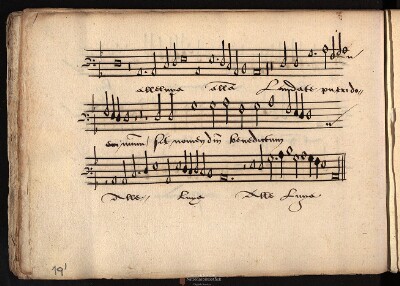 alleluya alla Laudate pueri do,,
sit nomen dni benedictum
Alle,, luya Alle Luya
19